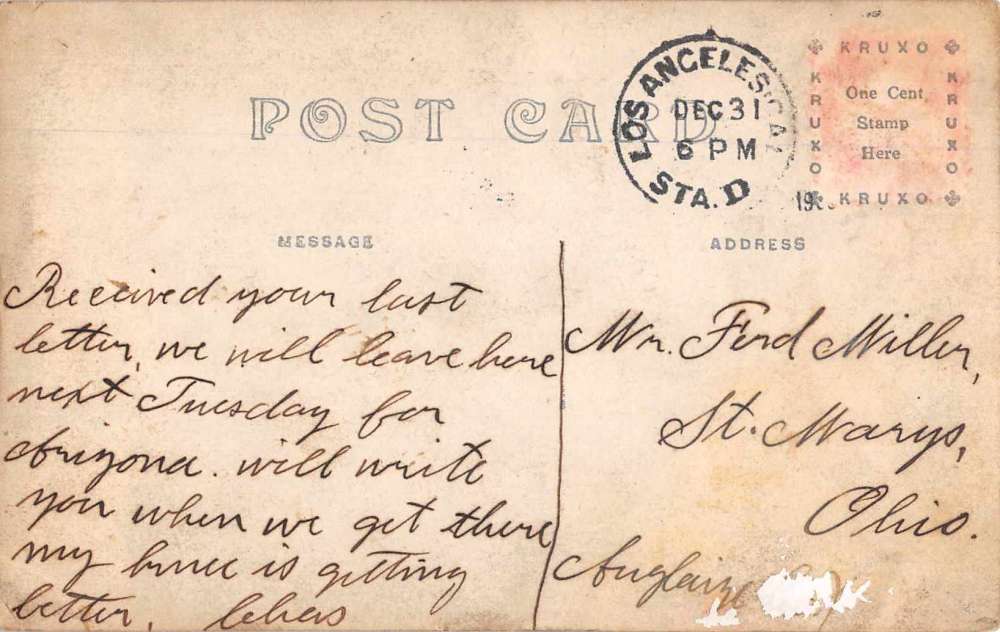 POST CARD
LOS ANGELES, CAL.
DEC 31
6 PM
STA. D
19
KRUXO
KRUXO
KRUXO
KRUXO
One Cent
Stamp
Here
MESSAGE
ADDRESS
Received your last
letter, we will leave here
next Tuesday for
Arizona. will write
you when we get there
my knee is getting
better. Chas
Mr. Ferd Miller,
St. Marys,
Ohio.
Auglaize